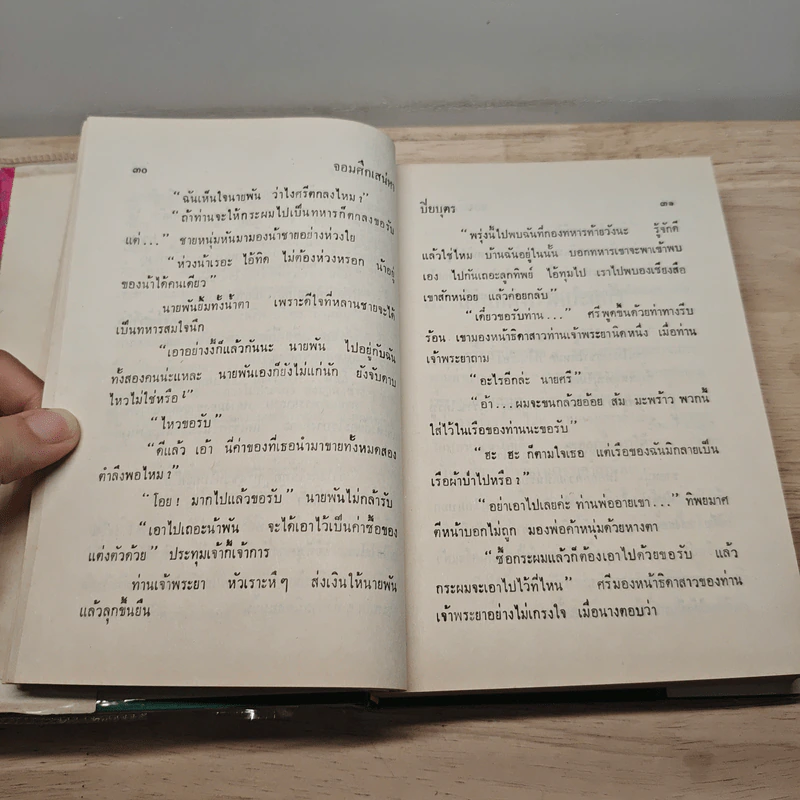 ๓๐
จอมศึกเสน่หา
“ฉันเห็นใจนายพัน ว่าไงศรีตกลงไหม ?”
“ถ้าท่านจะให้กระผมไปเป็นทหารก็ตกลงขอรับ
แต่...” ชายหนุ่มหันมามองน้าชายอย่างห่วงใย
“ห่วงน้าเรอะ ไอ้ทิด ไม่ต้องห่วงหรอก น้าอยู่
ของน้าได้คนเดียว”
นายพันยิ้มทั้งน้ำตา เพราะดีใจที่หลานชายจะได้
เป็นทหารสมใจนึก
“เอาอย่างงี้ก็แล้วกันนะ นายพัน ไปอยู่กับฉัน
ทั้งสองคนน่ะแหละ นายพันเองก็ยังไม่แก่นัก ยังจับดาบ
ไหวไม่ใช่หรือ ?”
“ไหวขอรับ”
“ดีแล้ว เอ้า นี่ค่าของที่เธอนำมาขายทั้งหมดสอง
ตำลึงพอไหม ?”
“โอย ! มากไปแล้วขอรับ” นายพันไม่กล้ารับ
“เอาไปเถอะน้าพัน จะได้เอาไว้เป็นค่าซื้อของ
แต่งตัวด้วย” ประทุมเจ้ากี้เจ้าการ
ท่านเจ้าพระยา หัวเราะหึๆ ส่งเงินให้นายพัน
แล้วลุกขึ้นยืน
ปิยบุตร
๓๑
“พรุ่งนี้ไปพบฉันที่กองทหารท้ายวังนะ รู้จักดี
แล้วใช่ไหม บ้านฉันอยู่ในนั้น บอกทหารเขาจะพาเข้าพบ
เอง ไปกันเถอะลูกทิพย์ ไอ้ทุมไป เราไปพบองเชียงสือ
เขาสักหน่อย แล้วค่อยกลับ”
“เดี๋ยวขอรับท่าน...” ศรีพูดขึ้นด้วยท่าทางรีบ
ร้อน เขามองหน้าธิดาสาวท่านเจ้าพระยานิดหนึ่ง เมื่อท่าน
เจ้าพระยาถาม
“อะไรอีกล่ะ นายศรี”
“อ้า...ผมจะขนกล้วยอ้อย ส้ม มะพร้าว พวกนี้
ใส่ไว้ในเรือของท่านนะขอรับ”
“ฮะ ฮะ ก็ตามใจเธอ แต่เรือของฉันมิกลายเป็น
เรือผ้าป่าไปหรือ ?”
“อย่าเอาไปเลยค่ะ ท่านพ่ออายเขา...” ทิพยมาศ
ตีหน้าบอกไม่ถูก มองพ่อค้าหนุ่มด้วยหางตา
“ซื้อกระผมแล้วก็ต้องเอาไปด้วยขอรับ แล้ว
กระผมจะเอาไปไว้ที่ไหน” ศรีมองหน้าธิดาสาวของท่าน
เจ้าพระยาอย่างไม่เกรงใจ เมื่อนางตอบว่า